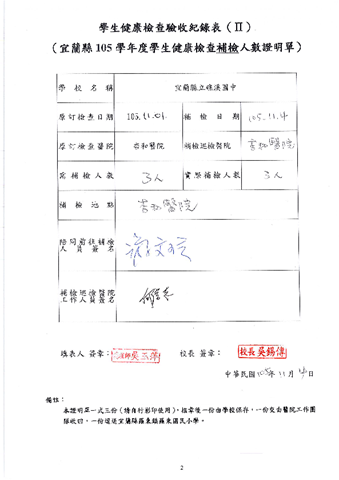 學生健康檢查驗收紀錄表（II）
（宜蘭縣 105 學年度學生健康檢查補檢人數證明單）
學校名稱 宜蘭縣立礁溪國中
原訂檢查日期 105.11.01 補檢日期 105.11.4
原訂檢查醫院 杏和醫院 補檢巡檢醫院 杏和醫院
需補檢人數 3人 實際補檢人數 3人
補檢地點 杏和醫院
陪同前往補檢
人員簽名
補檢巡檢醫院
工作人員簽名
填表人 簽章： 校長 簽章： 校長吳錫傳
中華民國 105年 11月 4日
備註：
本證明單一式三份（請自行影印使用），核章後一份由學校保存，一份交由醫院工作團
隊收回，一份逕送宜蘭縣羅東鎮羅東國民小學。
2